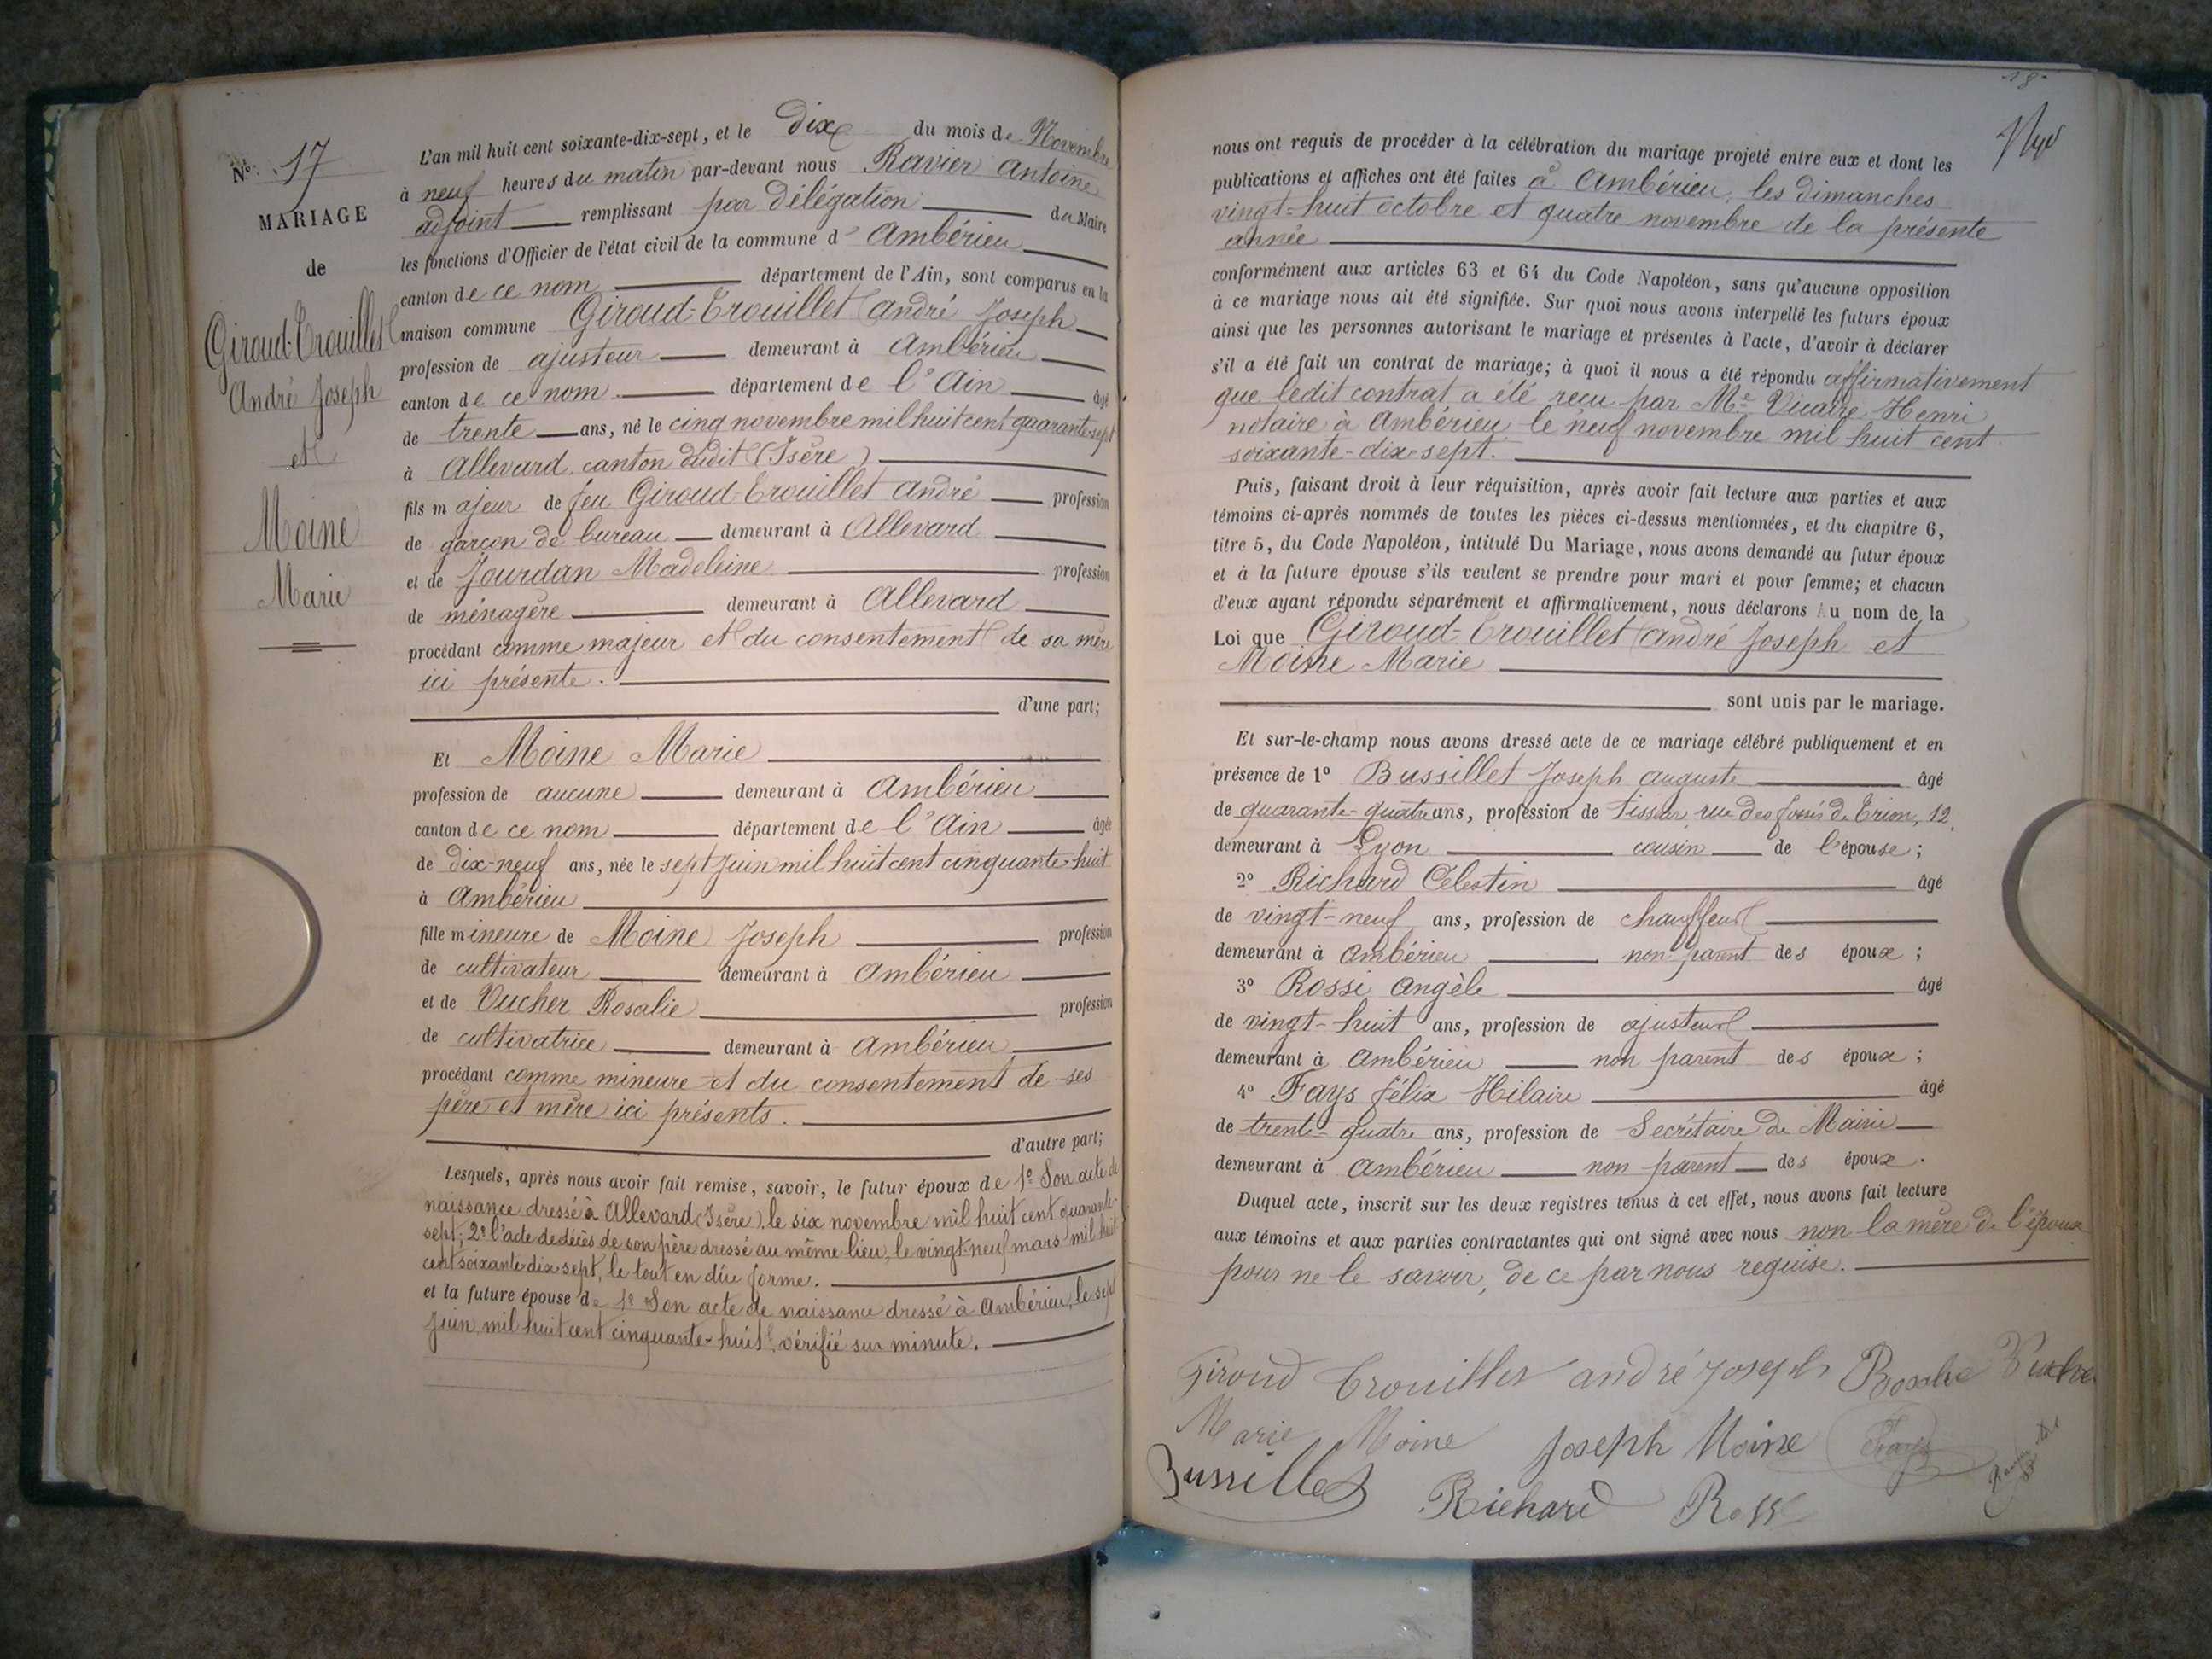 N° 17
MARIAGE
de
Giroud-Trouillet
André Joseph
et
Moine
Marie
L'an mil huit cent soixante-dix-sept, et le dix du mois de Novembre
à neuf heures du matin par-devant nous Ravier Antoine
adjoint remplissant par délégation du Maire
les fonctions d'Officier de l'état civil de la commune d' Ambérieu
canton de ce nom département de l'Ain, sont comparus en la
maison commune Giroud-Trouillet André Joseph
profession de ajusteur demeurant à Ambérieu
canton de ce nom département de l'Ain âgé
de trente ans, né le cinq novembre mil huit cent quarante-sept
à Allevard canton dudit (Isère)
fils majeur de feu Giroud-Trouillet André profession
de garçon de bureau demeurant à Allevard
et de Jourdan Madeleine profession
de ménagère demeurant à Allevard
procédant comme majeur et du consentement de sa mère
ici présente.
d'une part;
Et Moine Marie
profession de aucune demeurant à Ambérieu
canton de ce nom département de l'Ain âgée
de dix-neuf ans, née le sept Juin mil huit cent cinquante-huit
à Ambérieu
fille mineure de Moine Joseph profession
de cultivateur demeurant à Ambérieu
et de Vucher Rosalie profession
de cultivatrice demeurant à Ambérieu
procédant comme mineure et du consentement de ses
père et mère ici présents.
d'autre part;
Lesquels, après nous avoir fait remise, savoir, le futur époux de 1° Son acte de
naissance dressé à Allevard (Isère), le six novembre mil huit cent quarante-
sept; 2° l'acte de décès de son père dressé au même lieu, le vingt-neuf mars mil huit
cent soixante dix sept, le tout en dûe forme.
et la future épouse de 1° Son acte de naissance dressé à Ambérieu, le sept
Juin mil huit cent cinquante-huit, vérifié sur minute.
18
nous ont requis de procéder à la célébration du mariage projeté entre eux et dont les
publications et affiches ont été faites à Ambérieu, les dimanches
vingt-huit octobre et quatre novembre de la présente
année
conformément aux articles 63 et 64 du Code Napoléon, sans qu'aucune opposition
à ce mariage nous ait été signifiée. Sur quoi nous avons interpellé les futurs époux
ainsi que les personnes autorisant le mariage et présentes à l'acte, d'avoir à déclarer
s'il a été fait un contrat de mariage; à quoi il nous a été répondu affirmativement
que ledit contrat a été reçu par Me Vicaire Henri
notaire à Ambérieu le neuf novembre mil huit cent
soixante-dix-sept.
Puis, faisant droit à leur réquisition, après avoir fait lecture aux parties et aux
témoins ci-après nommés de toutes les pièces ci-dessus mentionnées, et du chapitre 6,
titre 5, du Code Napoléon, intitulé Du Mariage, nous avons demandé au futur époux
et à la future épouse s'ils veulent se prendre pour mari et pour femme; et chacun
d'eux ayant répondu séparément et affirmativement, nous déclarons au nom de la
Loi que Giroud-Trouillet André Joseph et
Moine Marie
sont unis par le mariage.
Et sur-le-champ nous avons dressé acte de ce mariage célébré publiquement et en
présence de 1° Bussillet Joseph Auguste âgé
de quarante-quatre ans, profession de tisseur rue des fossés de Trion, 12,
demeurant à Lyon cousin de l'épouse;
2° Richard Célestin âgé
de vingt-neuf ans, profession de chauffeur
demeurant à Ambérieu non parent des époux;
3° Rossi Angèle âgé
de vingt-huit ans, profession de ajusteur
demeurant à Ambérieu non parent des époux;
4° Fays Félix Hilaire âgé
de trente-quatre ans, profession de Secrétaire de Mairie
demeurant à Ambérieu non parent des époux.
Duquel acte, inscrit sur les deux registres tenus à cet effet, nous avons fait lecture
aux témoins et aux parties contractantes qui ont signé avec nous non la mère de l'époux
pour ne le savoir, de ce par nous requise.
Giroud Trouillet andré joseph Rosalie Vucher
Marie Moine Joseph Moine Fays
Bussillet Richard Rossi